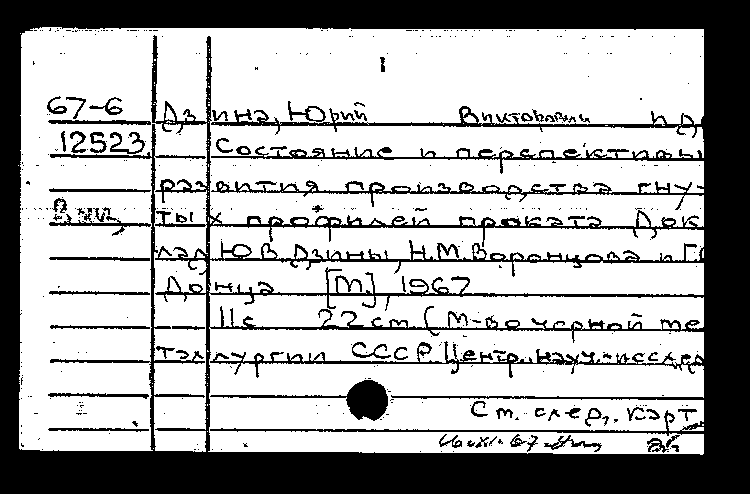 I
67-6 Дзина, Юрий Викторович и др
12523 Состояние и перспективы
развития производства гну-
тых профилей проката Док
лад Ю В Дзины, Н.М. Воронцова и Г
Донца [М.], 1967
11с 22 см. (М-во черной ме
таллургии СССР. Центр. науч.-исслед
См. след. карт.